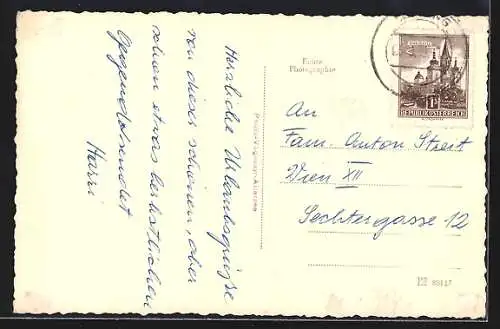 Herzliche Urlaubsgrüße
von dieser schönen, aber
schon etwas herbstlichen
Gegend sendet
Harri
Echte
Photographie
An
Fam. Anton Streit
Wien XII
Sechtergasse 12
REPUBLIK ÖSTERREICH